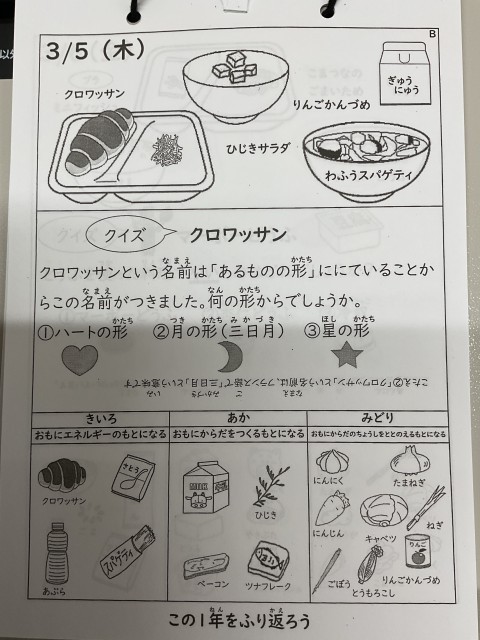 B
3/5（木）
クロワッサン
りんごかんづめ
ぎゅう
にゅう
ひじきサラダ
わふうスパゲティ
クイズ クロワッサン
クロワッサンという名前は「あるものの形」ににていることか
らこの名前がつきました。何の形からでしょうか。
①ハートの形 ②月の形（三日月） ③星の形
こたえ②「クロワッサン」という名前は、フランス語で「三日月」という意味です
きいろ あか みどり
おもにエネルギーのもとになる おもにからだをつくるもとになる おもにからだのちょうしをととのえるもとになる
クロワッサン
さとう
あぶら
スパゲティ
MILK
ひじき
ベーコン
ツナフレーク
にんにく
たまねぎ
にんじん
キャベツ
ねぎ
ごぼう
とうもろこし
りんご
りんごかんづめ
この1年をふり返ろう